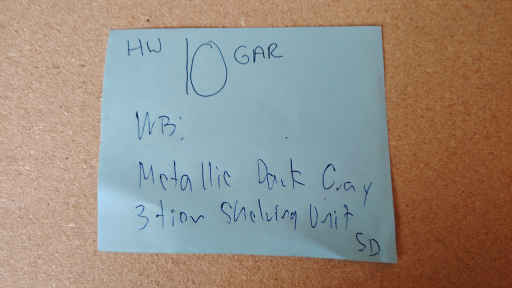 HW 10 GAR
WB:
Metallic Dark Gray
3 tier Shelving Unit
SD